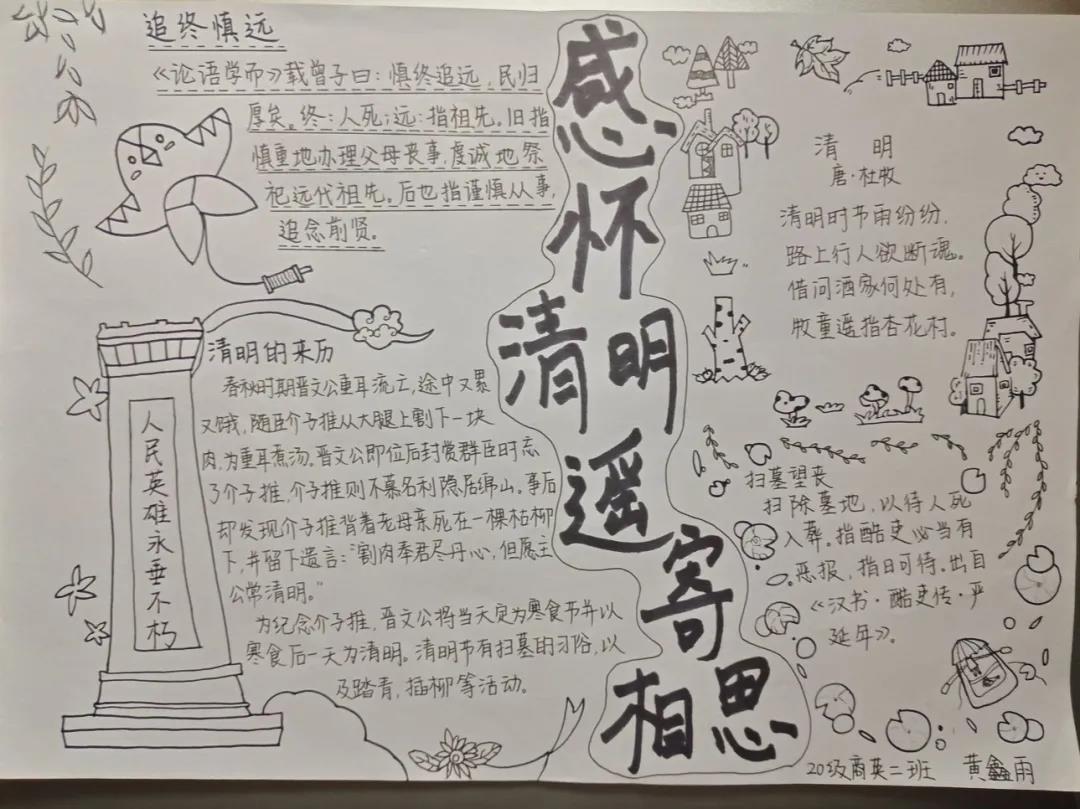 追终慎远
《论语学而》载曾子曰：慎终追远，民归
厚矣。终：人死；远：指祖先。旧指
慎重地办理父母丧事，虔诚地祭
祀远代祖先。后也指谨慎从事，
追念前贤。
感怀
清明
遥
寄
相思
清明
唐·杜牧
清明时节雨纷纷，
路上行人欲断魂。
借问酒家何处有，
牧童遥指杏花村。
清明的来历
春秋时期晋文公重耳流亡，途中又累
又饿，随臣介子推从大腿上割下一块
肉，为重耳煮汤。晋文公即位后封赏群臣时忘
了介子推，介子推则不慕名利隐居绵山。事后
却发现介子推背着老母亲死在一棵枯柳
下，并留下遗言："割肉奉君尽丹心，但愿主
公常清明。"
为纪念介子推，晋文公将当天定为寒食节并以
寒食后一天为清明。清明节有扫墓的习俗，以
及踏青，插柳等活动。
人民英雄永垂不朽
扫墓望丧
扫除墓地，以待人死
入葬。指酷吏必当有
恶报，指日可待。出自
《汉书·酷吏传·严
延年》。
20级商英二班 黄鑫雨